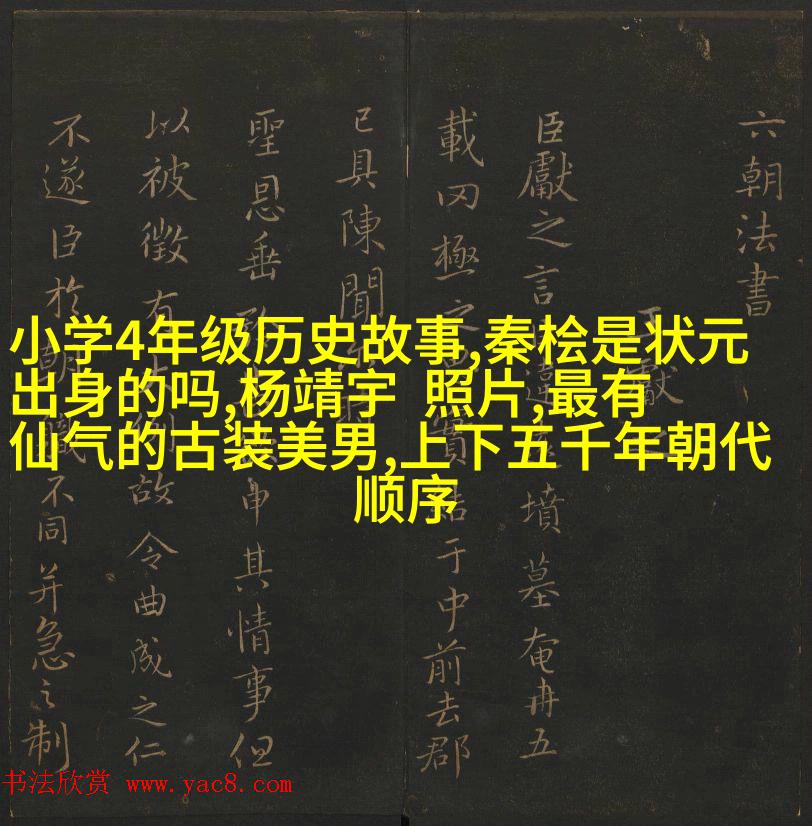 小学4年级历史故事,秦桧是状元
出身的吗,杨靖宇 照片,最有
仙气的古装美男,上下五千年朝代
顺序
六朝法書
獻
臣獻之言違墳墓奄冉五
載罔極之實于中前去郡
已具陳聞
聖恩垂申其情事但
以被徵有故令曲成之仁
不遂臣於職不同并急之制
书法欣赏 www.yac8.com